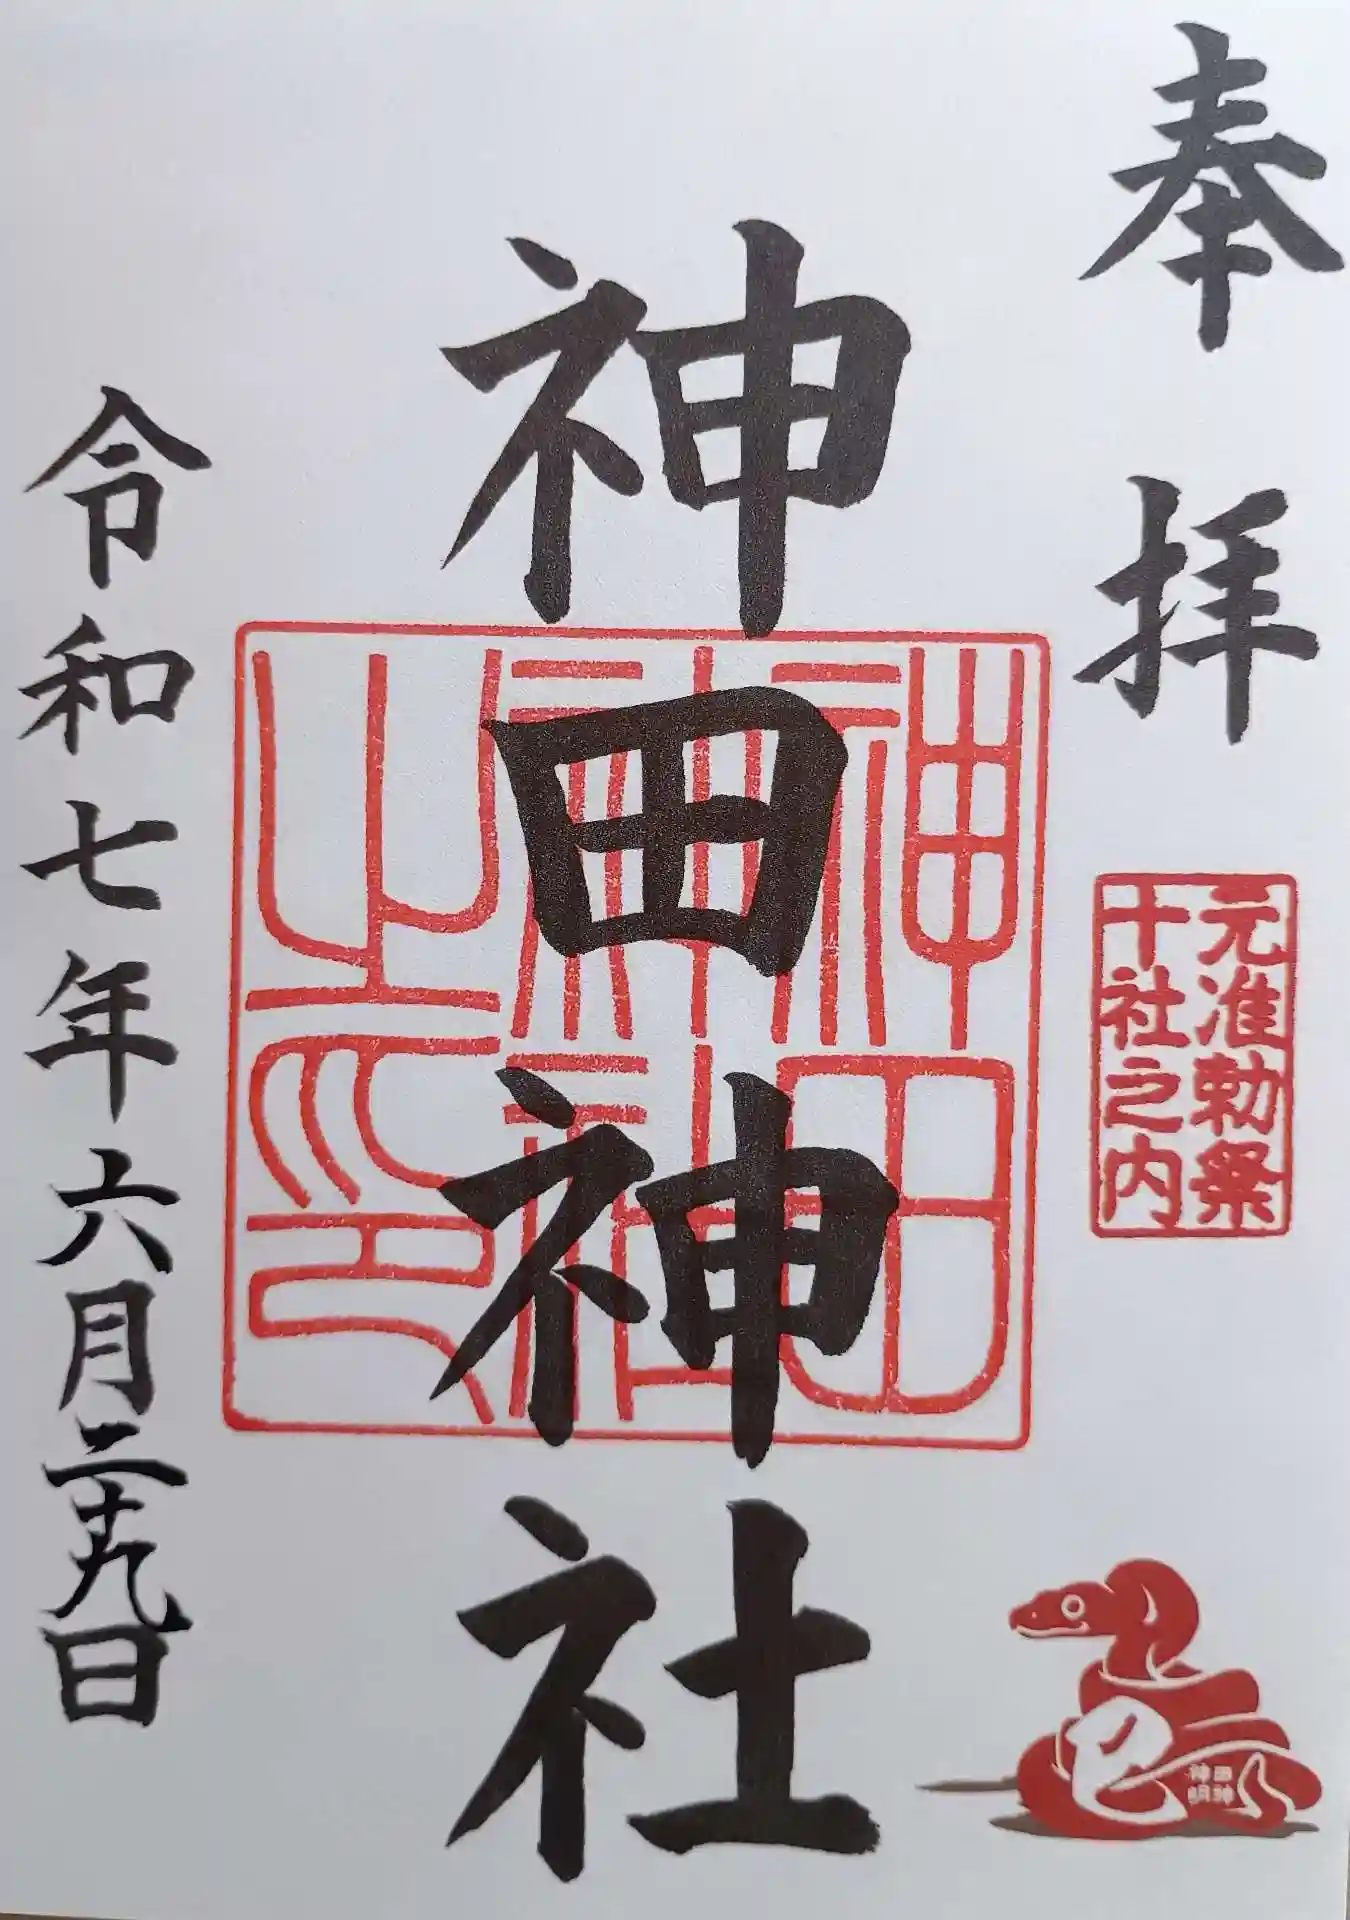 奉拝
元准勅祭
十社之内
神田神社
神田
神社
之印
令和七年六月二十九日
巳
神田神明